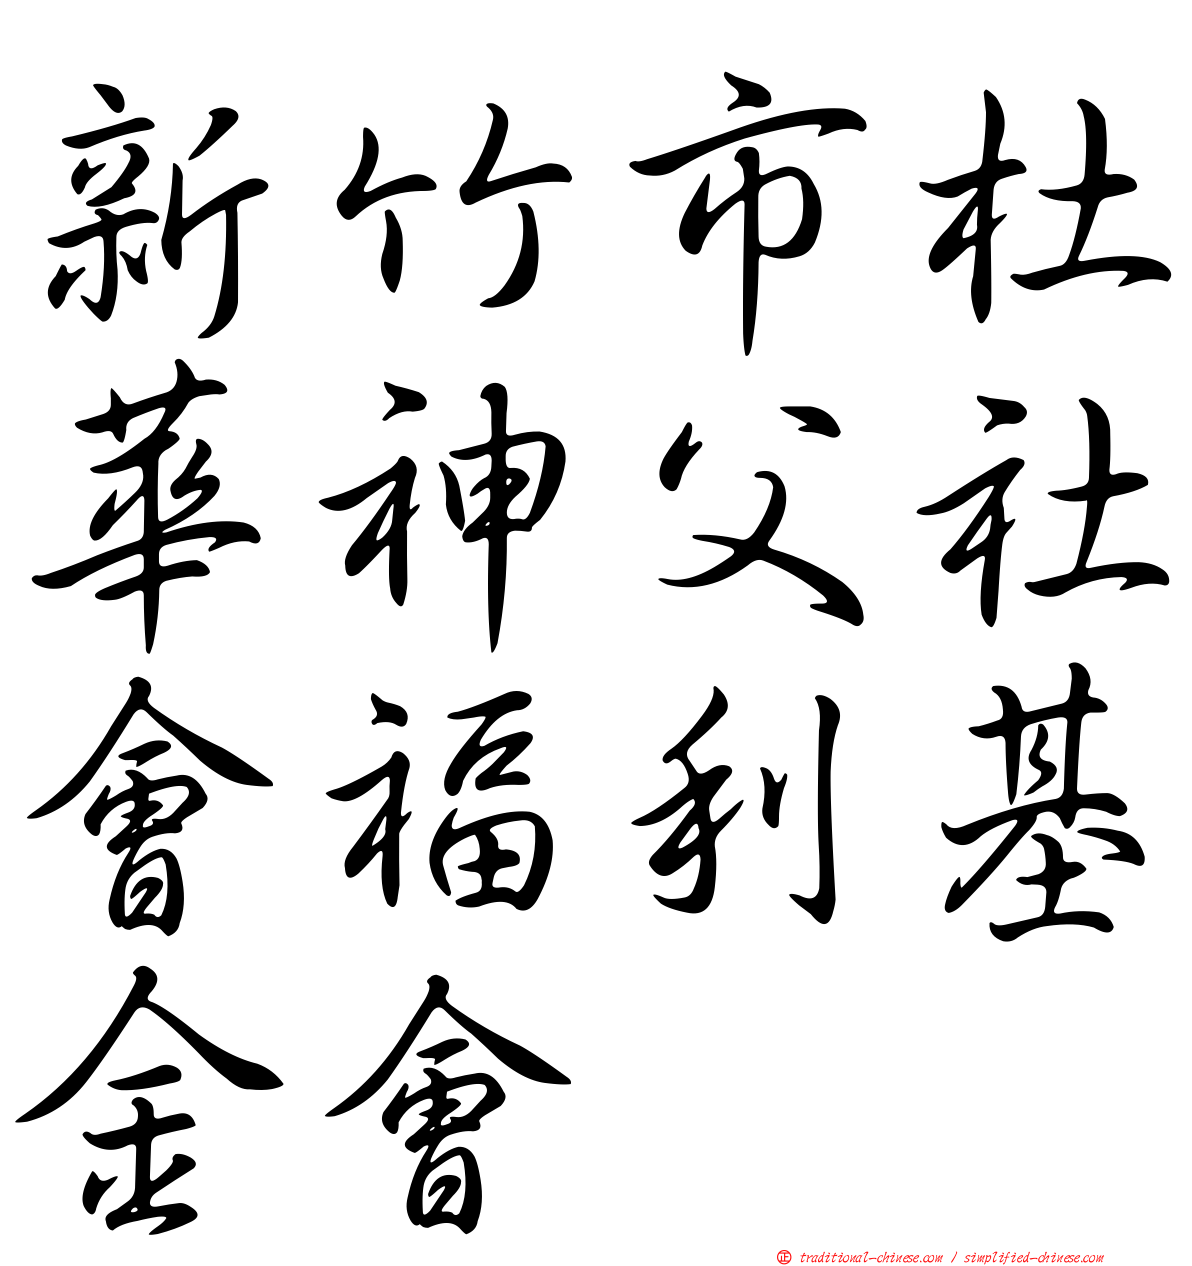 新竹市杜
華神父社
會福利基
金會
正 traditional-chinese.com / simplified-chinese.com